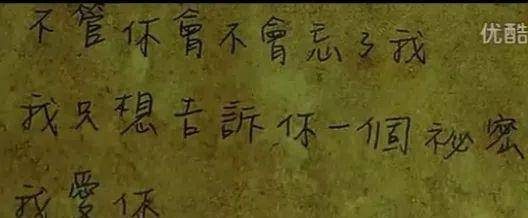 不管你會不會忘了我
优酷
我只想告訴你一個祕密
我愛你